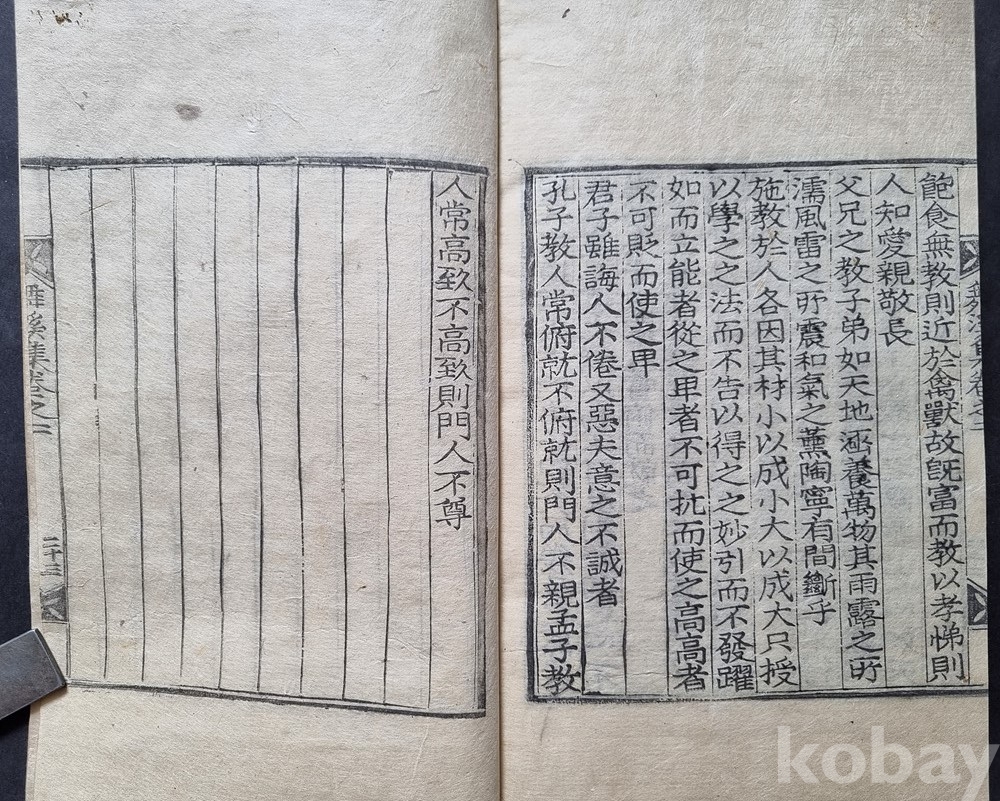 飽食無教則近於禽獸故旣富而教以孝悌則
人知愛親敬長
父兄之教子弟如天地涵養萬物其雨露之所
濡風雷之所震和氣之薰陶寧有間斷乎
施教於人各因其材小以成小大以成大只授
以學之之法而不告以得之之妙引而不發躍
如而立能者從之卑者不可抗而使之高高者
不可貶而使之卑
君子雖誨人不倦又惡夫意之不誠者
孔子教人常俯就不俯就則門人不親孟子教
人常高致不高致則門人不尊
溪集卷之二
二十三
kobay